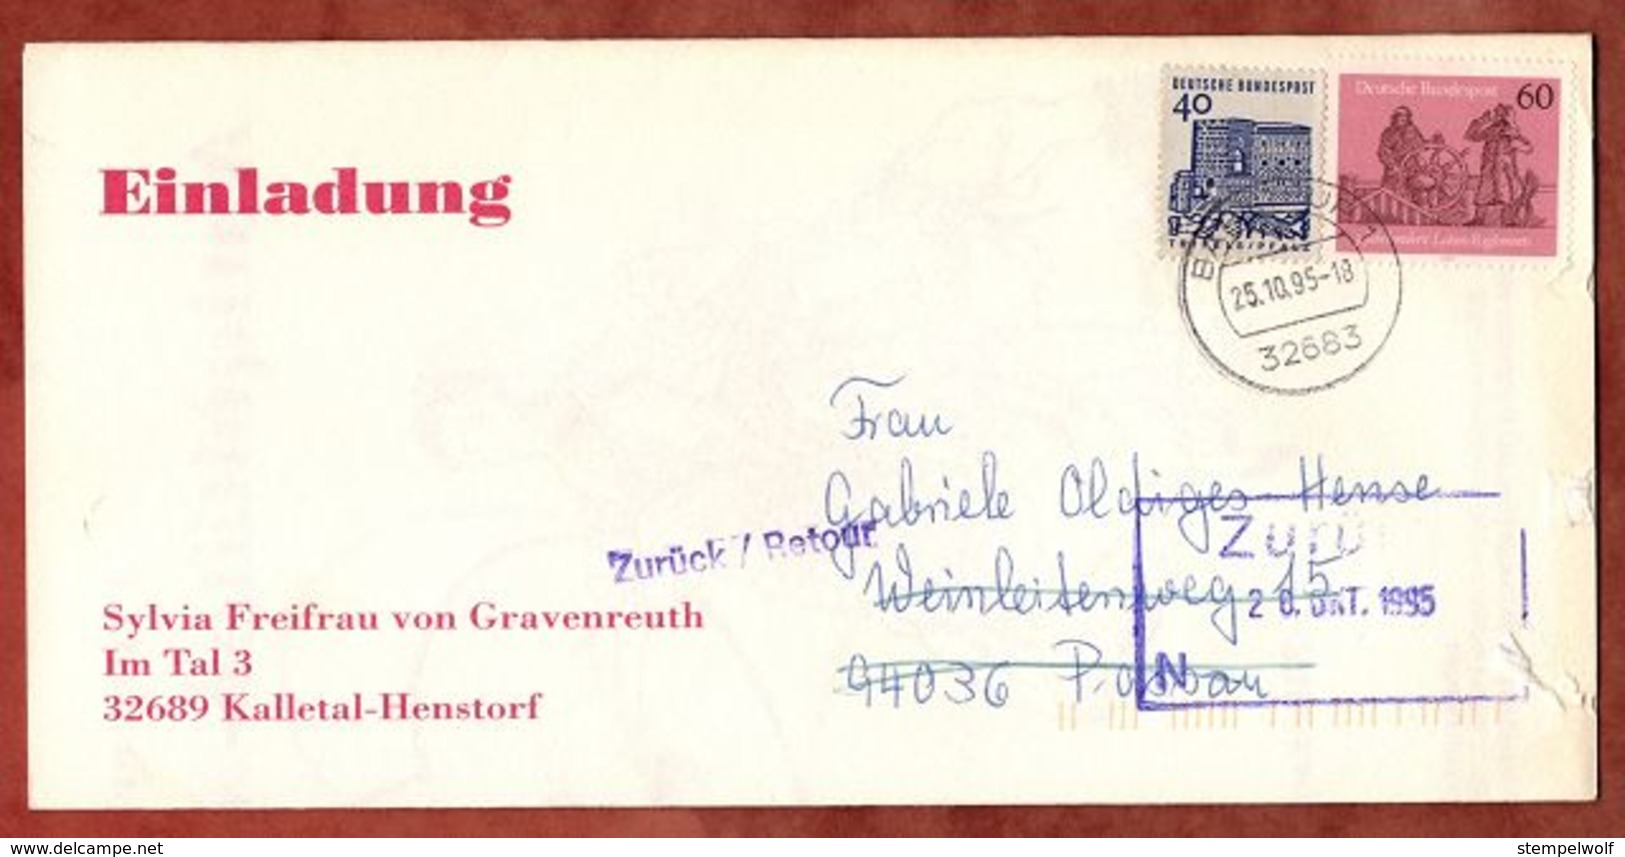 DEUTSCHE BUNDESPOST
40
TRIFELS/PFALZ
Deutsche Bundespost
60
25.10.95-18
32683
Einladung
Frau
Gabriele Oldiges Hense
Weinleitenweg 15
94036 Passau
Zurück / Retour
Zurü
OKT. 1995
N
Sylvia Freifrau von Gravenreuth
Im Tal 3
32689 Kalletal-Henstorf
www.delcampe.net
stempelwolf